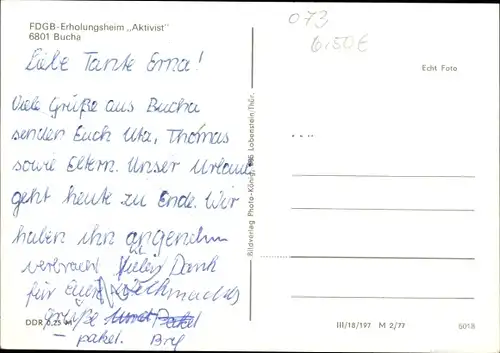 FDGB-Erholungsheim „Aktivist"
6801 Bucha
073
6,50€
Echt Foto
Liebe Tante Erna!
Viele Grüße aus Bucha
senden Euch Uta, Thomas
sowie Eltern. Unser Urlaub
geht heute zu Ende. Wir
haben ihn angenehm
verbracht. Vielen Dank
für Eure
grüße
paket.
Bildverlag Photo-König, Lobenstein/Thür.
DDR 0,25 M
III/18/197 M 2/77
5018